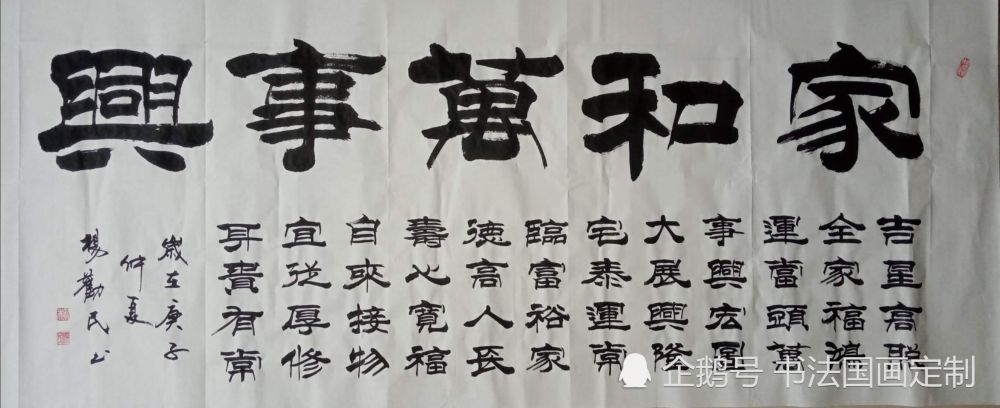 家和萬事興
吉星高照
全家福鴻
運當頭萬
事興宏圖
大展興隆
宅泰運常
臨富裕家
德高人長
壽心寬福
自來接物
宜從厚修
身貴有常
歲在庚子
仲夏
楊勸民书
企鹅号 书法国画定制